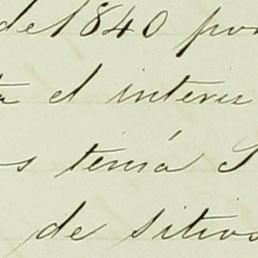 de 1840 por
a el interes
s tenía S
de sitios